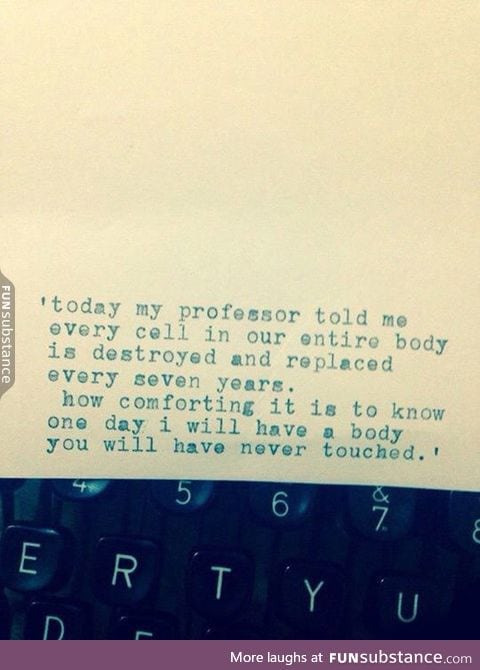 'today my professor told me
every cell in our entire body
is destroyed and replaced
every seven years.
how comforting it is to know
one day i will have a body
you will have never touched.'
4 5 6 & 7 8
E R T Y U
D
FUNsubstance
More laughs at FUNsubstance.com